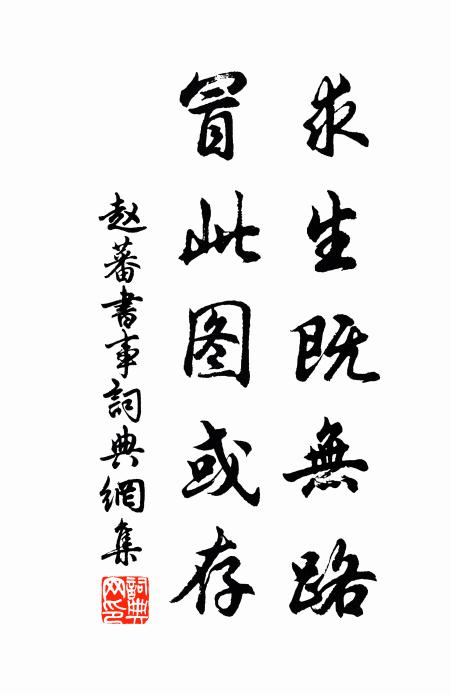 求生既無路
冒此图或存
赵蕃書事詞典網集
詞典网印